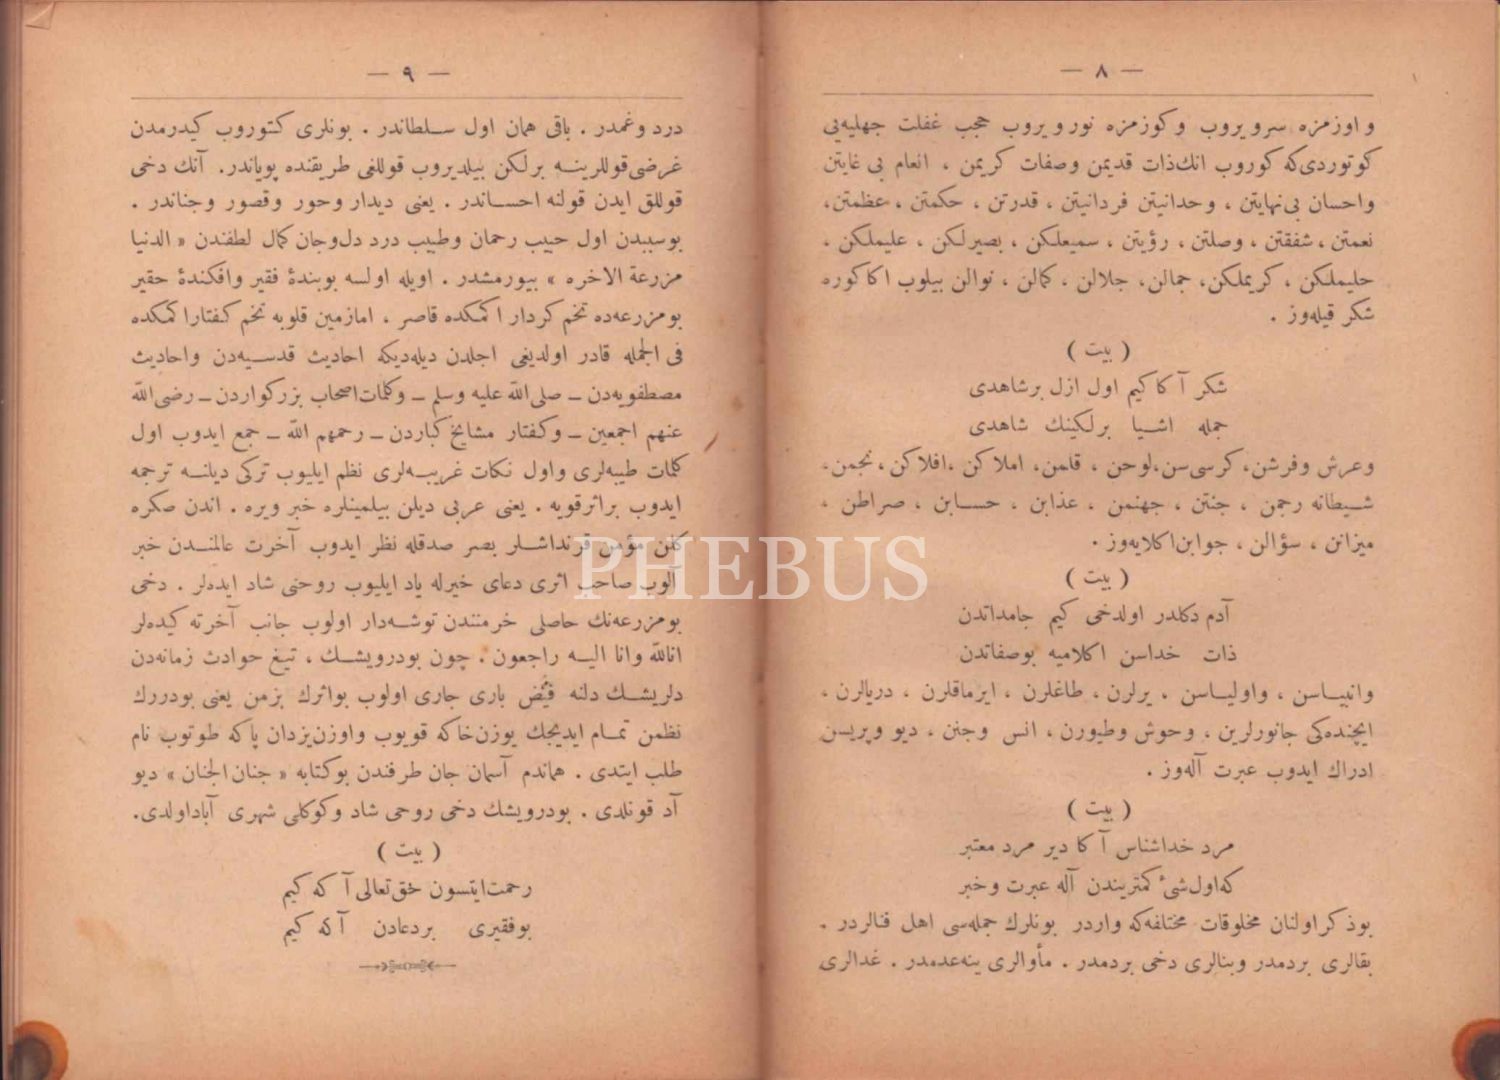 — ٨ —
و اوزمزه سرویروب وکوزمزه نور ویروب حجب غفلت جهلیه‌یی
کوتوردی‌که کوروب انك ذات قدیمن وصفات کریمن ، انعام بی غایتن
واحسان بی‌نهایتن ، وحدانیتن فردانیتن ، قدرتن ، حکمتن ، عظمتن،
نعمتن ، شفقتن ، وصلتن ، رؤیتن ، سمیعلکن ، بصیرلکن ، علیملکن ،
حلیملکن ، کریملکن، جمالن، جلالن ، کمالن ، نوالن بیلوب اکاکوره
شکر قیله‌وز .
( بیت )
شکر آکا کیم اول ازل برشاهدی
جمله اشیا برلکینك شاهدی
وعرش وفرشن، کرسی‌سن،لوحن ، قلمن، املاکن ،افلاکن ، نجمن،
شیطانه رجمن ، جنتن ، جهنمن ، عذابن ، حسابن ، صراطن ،
میزانن ، سؤالن ، جوابن‌اکلایه‌وز .
( بیت )
آدم دکلدر اولدخی کیم جامداتدن
ذات خداسن اکلامیه بوصفاتدن
وانبیاسن ، واولیاسن . یرلرن ، طاغلرن ، ایرماقلرن ، دریالرن ،
ایچنده‌کی جانورلرین ، وحوش وطیورن ، انس وجنن ، دیو وپریسن
ادراك ایدوب عبرت آله‌وز .
( بیت )
مرد خداشناس آکا دیر مرد معتبر
که‌اول‌شیٔ کمتریندن آله عبرت وخبر
بوذکر اولنان مخلوقات مختلفه‌که واردر بونلرك جمله‌سی اهل فنالردر .
بقالری بردمدر وبنالری دخی بردمدر . مأوالری ینه‌عدمدر . غدالری
— ٩ —
درد وغمدر . باقی همان اول سلطاندر . بونلری کتوروب کیدرمدن
غرضی‌قوللرینه برلکن بیلدیروب قوللغی طریقنده پویاندر. آنك دخی
قوللق ایدن قولنه احساندر . یعنی دیدار وحور وقصور وجناندر .
بوسببدن اول حبیب رحمان وطبیب درد دل‌وجان کمال لطفندن « الدنیا
مزرعة الاخره » بیورمشدر . اویله اولسه بوبندهٔ فقیر وافکندهٔ حقیر
بومزرعه‌ده تخم کردار اکمکده قاصر ، امازمین قلوبه تخم کفتاراکمکده
فی الجمله قادر اولدیغی اجلدن دیله‌دیکه احادیث قدسیه‌دن واحادیث
مصطفویه‌دن ـ صلی‌الله علیه وسلم ـ وکلمات‌اصحاب بزرکواردن ـ رضی‌الله
عنهم اجمعین ـ وکفتار مشایخ‌کباردن ـ رحمهم الله ـ جمع ایدوب اول
کلمات طیبه‌لری واول نکات غریبه‌لری نظم ایلیوب ترکی دیلنه ترجمه
ایدوب براثرقویه . یعنی عربی دیلن بیلمینلره خبر ویره . اندن صکره
کلن مؤمن قرنداشلر بصر صدقله نظر ایدوب آخرت عالمندن خبر
آلوب صاحب اثری دعای خیرله یاد ایلیوب روحنی شاد ایده‌لر . دخی
بومزرعه‌نك حاصلی خرمنندن توشه‌دار اولوب جانب آخرته کیده‌لر
انالله وانا الیه راجعون . چون بودرویشك ، تیغ حوادث زمانه‌دن
دلریشك دلنه فیض باری جاری اولوب بواثرك بزمن یعنی بودررك
نظمن تمام ایدیجك یوزن‌خاکه قویوب واوزن‌یزدان پاکه طوتوب نام
طلب ایتدی . هماندم آسمان جان طرفندن بوکتابه « جنان الجنان » دیو
آد قونلدی . بودرویشك دخی روحی شاد وکوکلی شهری آباداولدی.
( بیت )
رحمت‌ایتسون حق‌تعالی آکه کیم
بوفقیری بردعادن آکه کیم
PHEBUS